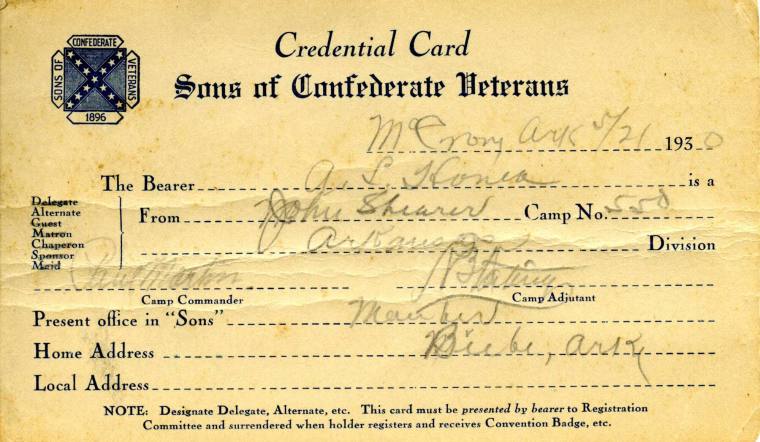 CONFEDERATE
SONS OF
VETERANS
1896
Credential Card
Sons of Confederate Veterans
McCrory Ark 5/21 1930
The Bearer A. L. is a
Delegate
Alternate
Guest
Matron
Chaperon
Sponsor
Maid
From John Shearer Camp No. 558
Arkansas Division
Camp Commander Camp Adjutant
Present office in "Sons" Member
Home Address Beebe, Ark
Local Address
NOTE: Designate Delegate, Alternate, etc. This card must be presented by bearer to Registration
Committee and surrendered when holder registers and receives Convention Badge, etc.